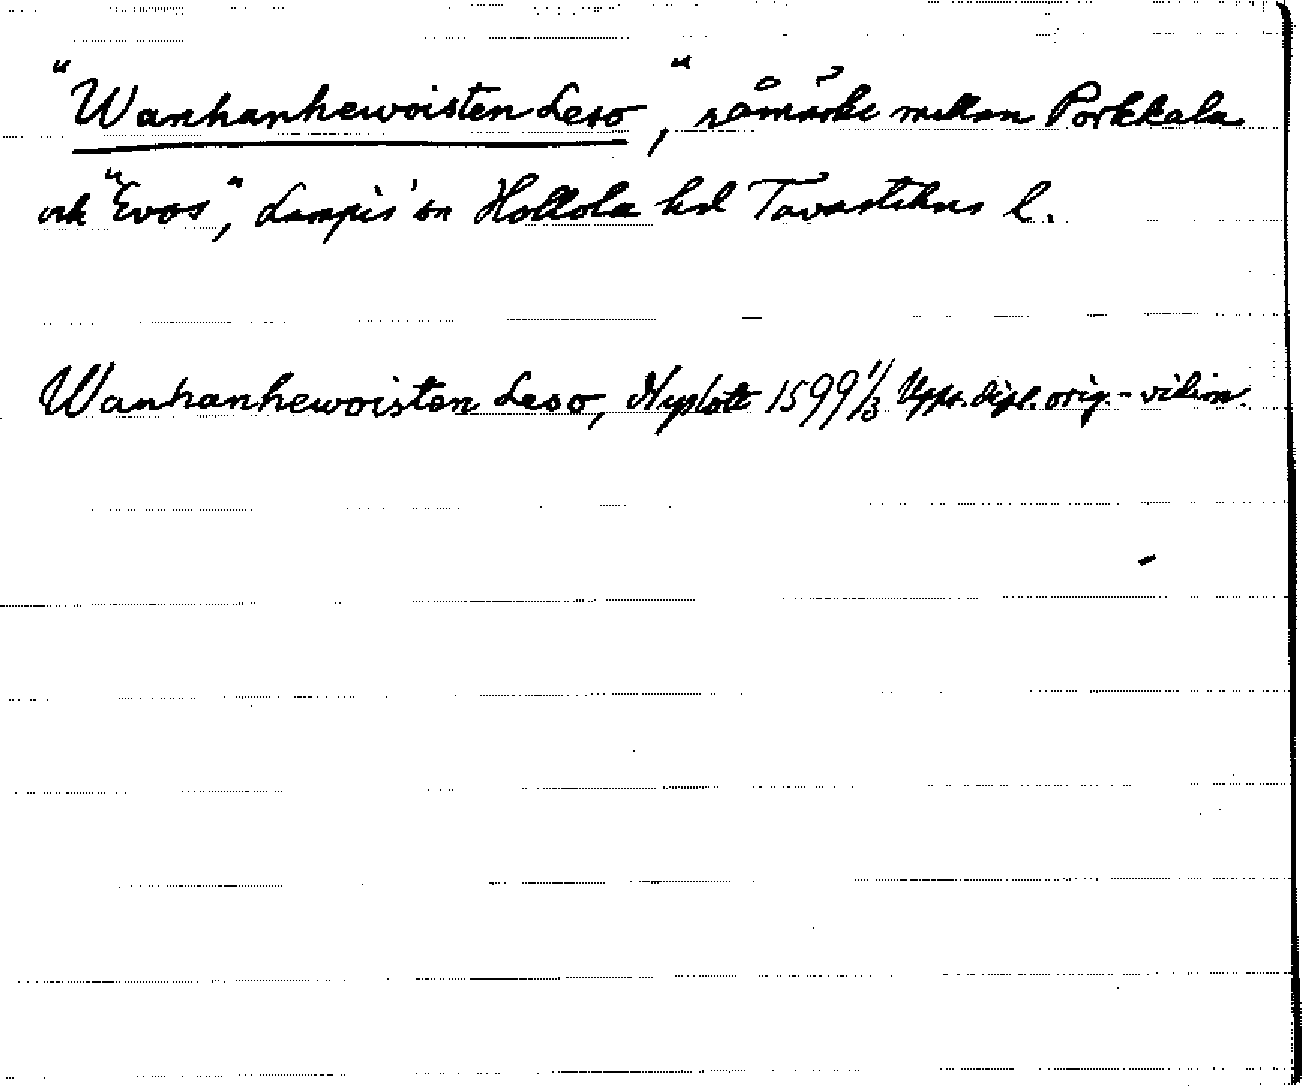 "Wanhanhewoisten Leso", råmärke mellan Porkkala
och "Evos", Lampis sn Hollola hd Tavastehus l.
Wanhanhewoisten Leso, Nyslott 1599 1/3 Upps. dipl. orig.-vidim.